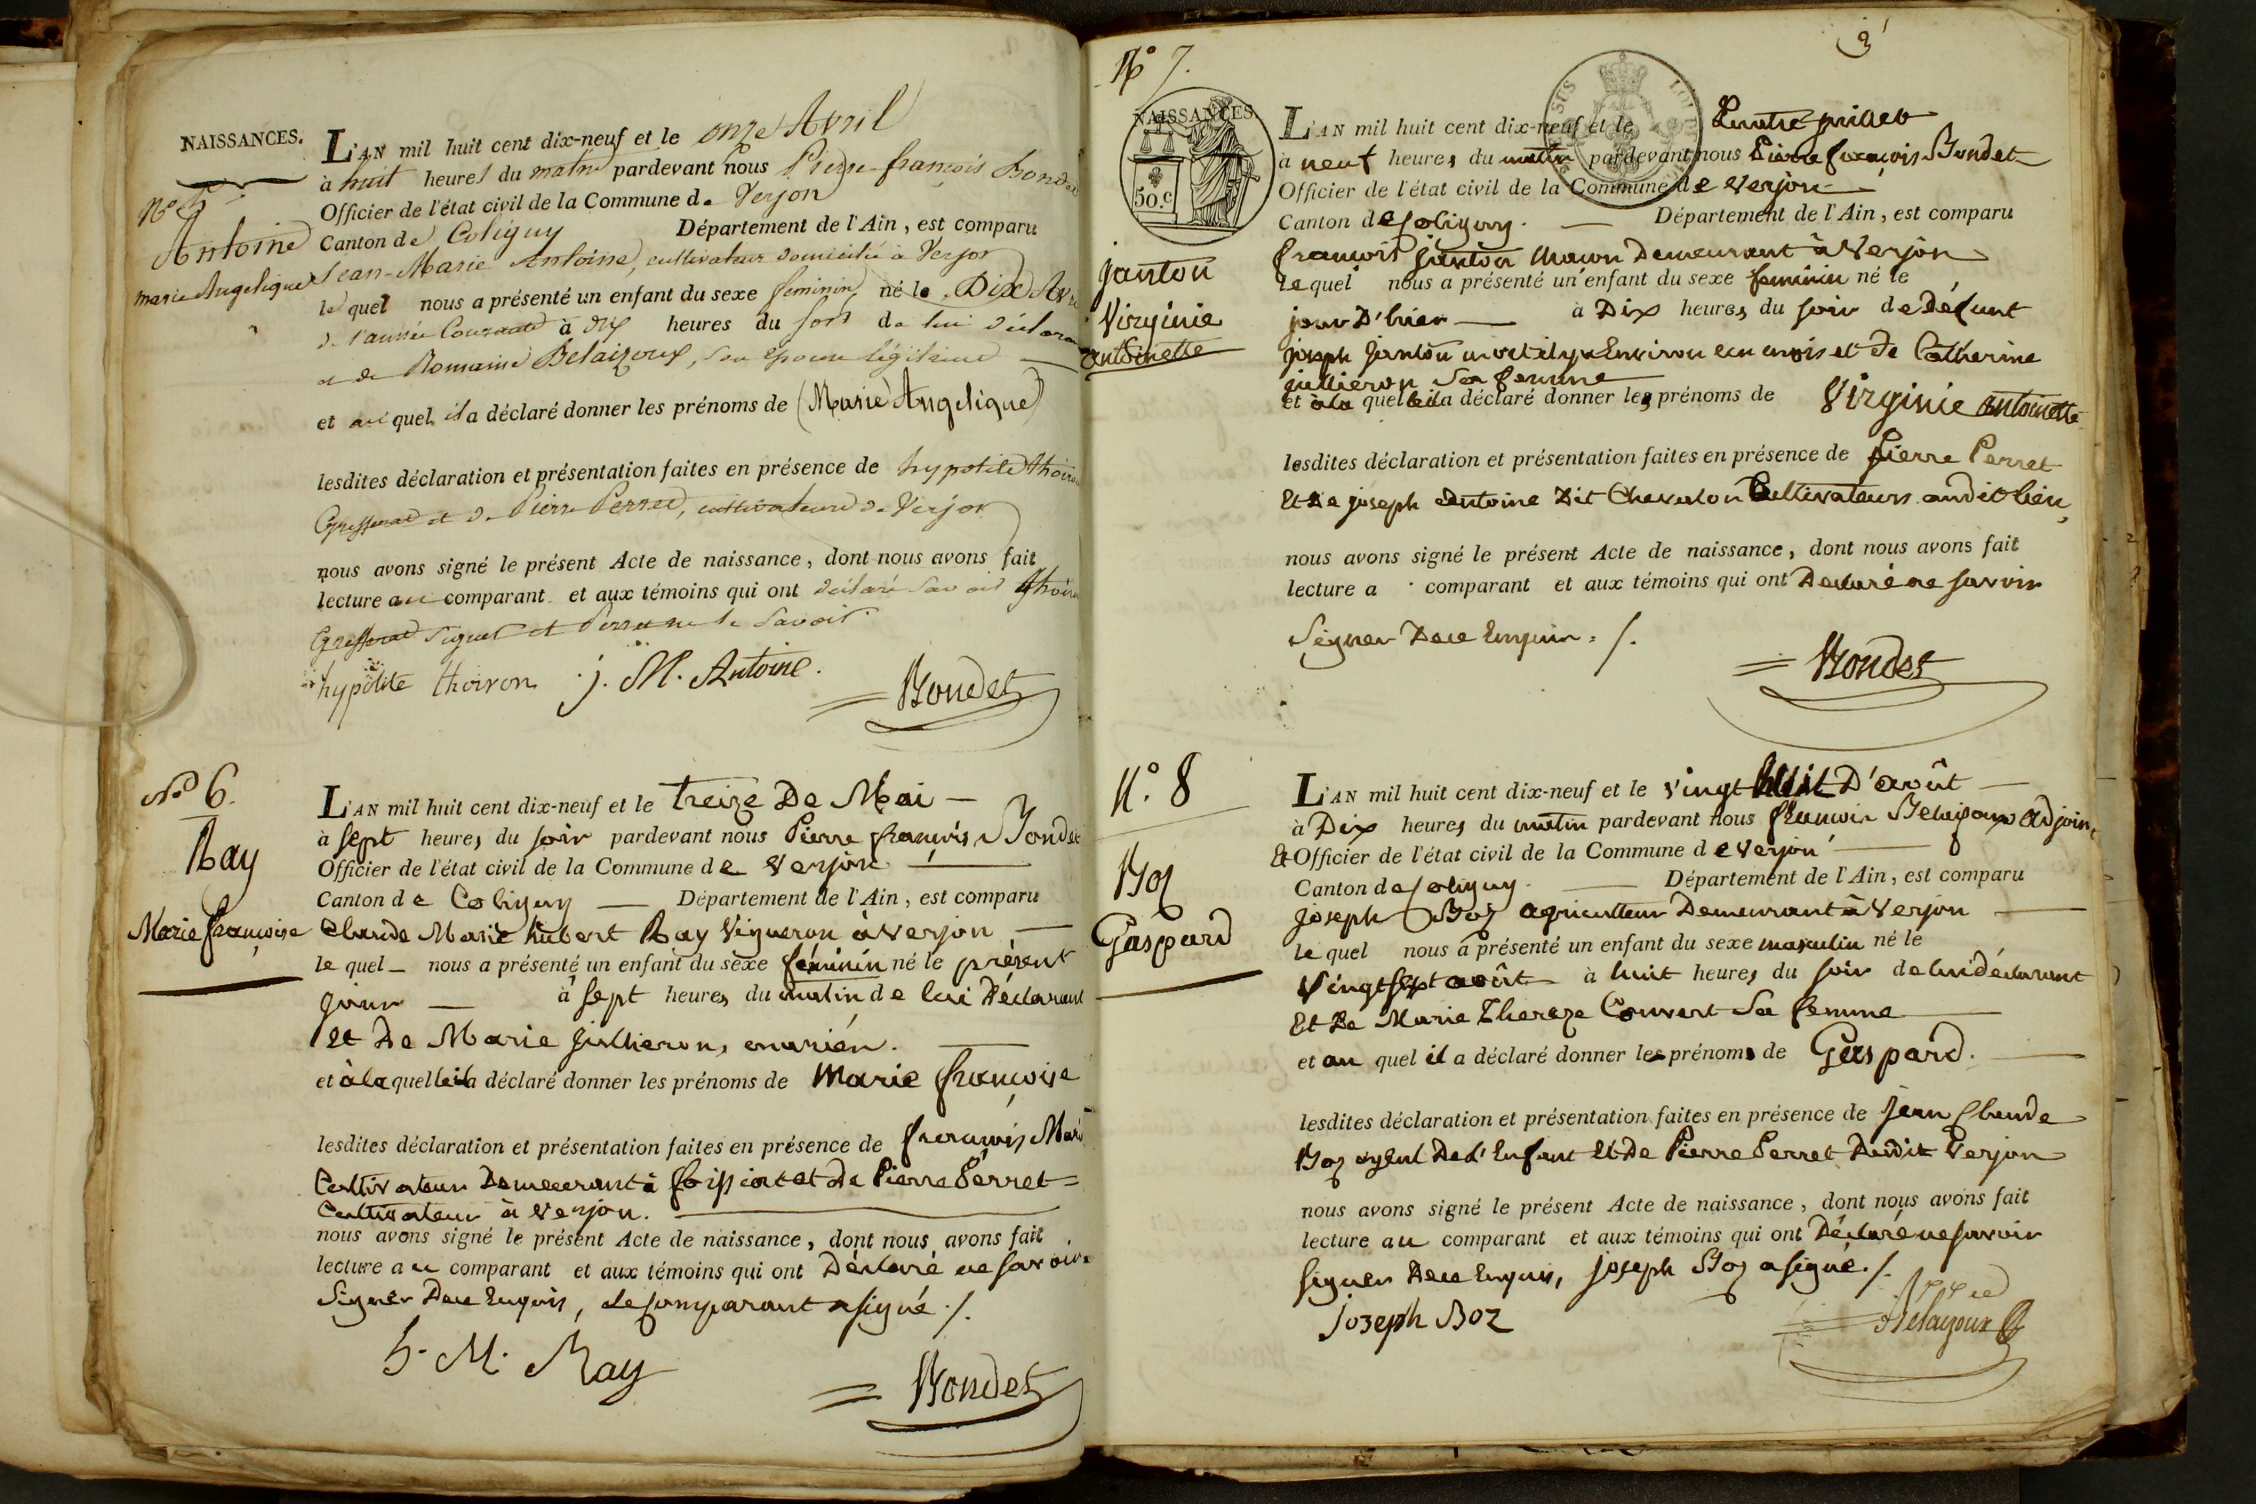 NAISSANCES.
N° 5.
Antoine
marie Angelique
L'AN mil huit cent dix-neuf et le onze Avril
à huit heures du matin pardevant nous Pierre françois Bondet
Officier de l'état civil de la Commune de Verjon
Canton de Coligny Département de l'Ain, est comparu
Jean-Marie Antoine, cultivateur domicilié à Verjon
le quel nous a présenté un enfant du sexe feminin né le Dix Avril
de l'année Courante à dix heures du soir de lui déclarant
et de Romaine Delaizoux, son épouse légitime
et au quel il a déclaré donner les prénoms de (Marie Angelique)
lesdites déclaration et présentation faites en présence de hypolite thoiron
et de Pierre Perret, cultivateurs de Verjon
nous avons signé le présent Acte de naissance, dont nous avons fait
lecture au comparant et aux témoins qui ont déclaré savoir thoiron
signer et Perret ne le savoir
hypolite thoiron j. M. Antoine.
Bondet
N° 6.
Ray
Marie françoise
L'AN mil huit cent dix-neuf et le treize De Mai
à sept heures du soir pardevant nous Pierre françois Bondet
Officier de l'état civil de la Commune de Verjon
Canton de Coligny Département de l'Ain, est comparu
Claude Marie hubert Ray Vigneron à Verjon
le quel nous a présenté un enfant du sexe féminin né le présent
jour à sept heures du matin de lui Déclarant
et De Marie Jullieron,
et à la quelle il a déclaré donner les prénoms de Marie françoise
lesdites déclaration et présentation faites en présence de françois
Cultivateur Demeurant à foissiat et De Pierre Perret
Cultivateur à Verjon.
nous avons signé le présent Acte de naissance, dont nous avons fait
lecture au comparant et aux témoins qui ont Déclaré ne savoir
Signer De ce Enquis, Le Comparant a signé ./.
h. M. Ray
Bondet
N° 7.
NAISSANCES
50.c
janton
Virginie
antoinette
L'AN mil huit cent dix-neuf et le quatre juillet
à neuf heures du matin pardevant nous Pierre françois Bondet
Officier de l'état civil de la Commune de Verjon
Canton de Coligny. Département de l'Ain, est comparu
françois janton Maçon Demeurant à Verjon
le quel nous a présenté un enfant du sexe feminin né le
jour D'hier à Dix heures du soir de Défunt
joseph janton mort il y a Environ un mois et de Catherine
jullieron Sa femme
et à la quelle il a déclaré donner les prénoms de Virginie antoinette
lesdites déclaration et présentation faites en présence de Pierre Perret
Et De joseph antoine Dit Chevalon Cultivateurs audit lieu,
nous avons signé le présent Acte de naissance, dont nous avons fait
lecture a comparant et aux témoins qui ont Déclaré ne savoir
Signer De ce Enquis ./.
Bondet
N°. 8
Boz
Gaspard
L'AN mil huit cent dix-neuf et le vingt huit D'août
à Dix heures du matin pardevant nous françois Delaizoux adjoint
Et Officier de l'état civil de la Commune de Verjon
Canton de Coligny. Département de l'Ain, est comparu
joseph Boz agriculteur Demeurant à Verjon
le quel nous a présenté un enfant du sexe masculin né le
Vingt sept août à huit heures du soir de lui déclarant
Et De Marie Thereze Couvert Sa femme
et au quel il a déclaré donner les prénoms de Gaspard.
lesdites déclaration et présentation faites en présence de jean Claude
Boz ayeul De l'Enfant Et De Pierre Perret Dudit Verjon
nous avons signé le présent Acte de naissance, dont nous avons fait
lecture au comparant et aux témoins qui ont Déclaré ne savoir
signer De ce Enquis, joseph Boz a signé ./.
Joseph Boz